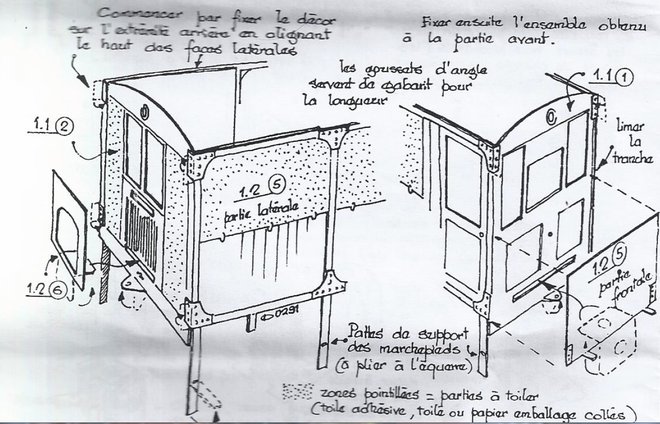 Commencer par fixer le décor
sur l'extrémité arrière en alignant
le haut des faces latérales
Fixer ensuite l'ensemble obtenu
à la partie avant.
les goussats d'angle
servent de gabarit pour
la longueur
1.1 ①
1.1 ②
limar
la
tranche
1.2 ⑤
partie latérale
1.2 ⑤
partie
frontale
1.2 ⑥
0291
Pattes de support
des marchepieds
(à plier à l'équerre)
zones pointillées = parties à toiler
(toile adhésive, toile ou papier emballage collés)